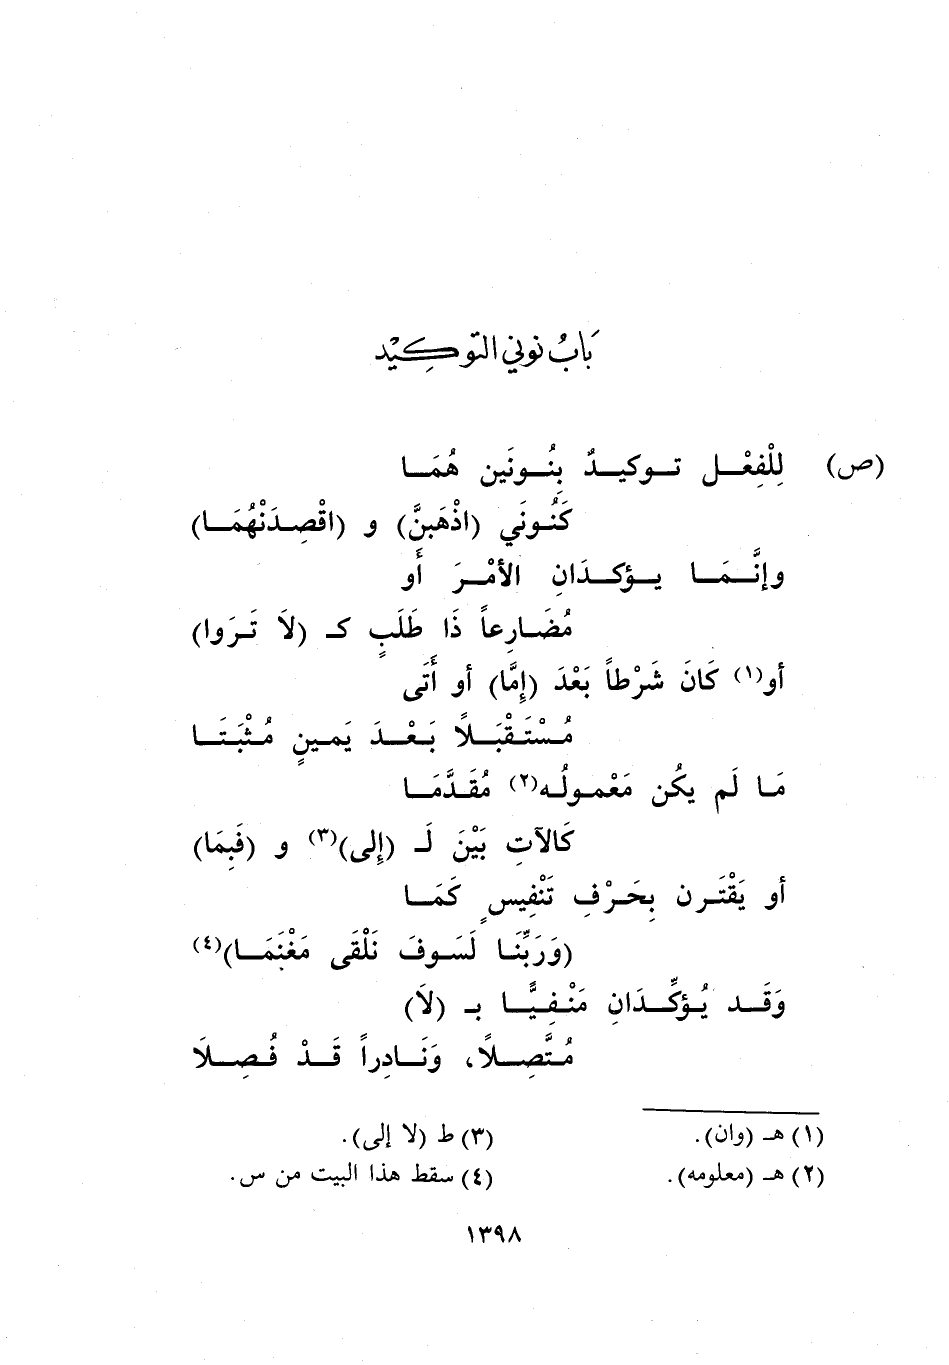 بَابُ نوني التوكيْد
(ص) لِلْفِعْـل تـوكيـدٌ بِنُـونَين هُمَـا
كَنُـونَي (اذْهَبنَّ) و (اقْصِـدَنْهُمَـا)
وإنَّـمَـا يـؤكـدَانِ الأمْـرَ أَو
مُضَـارِعاً ذَا طَلَبٍ كـ (لاَ تَـرَوا)
أو(١) كَانَ شَرْطاً بَعْدَ (إمَّا) أو أَتَى
مُـسْتَـقْبَـلاً بَـعْـدَ يَمـينٍ مُـثْبَـتَـا
مَـا لَم يكُن مَعْمـولُـه(٢) مُقَـدَّمَـا
كَالآتِ بَيْنَ لَـ (إلى)(٣) و (فَبِمَا)
أو يَقْتَـرن بِحَـرْفِ تَنْفِيسٍ كَمَـا
(وَرَبِّنَـا لَسَـوفَ نَلْقَى مَغْنَمَـا)(٤)
وَقَـد يُـؤكِّـدَانِ مَنْـفِيًّـا بـ (لاَ)
مُتَّصِـلاً، وَنَـادِراً قَـدْ فُـصِـلاَ
(١) هـ (وان).
(٢) هـ (معلومه).
(٣) ط (لا إلى).
(٤) سقط هذا البيت من س.
١٣٩٨